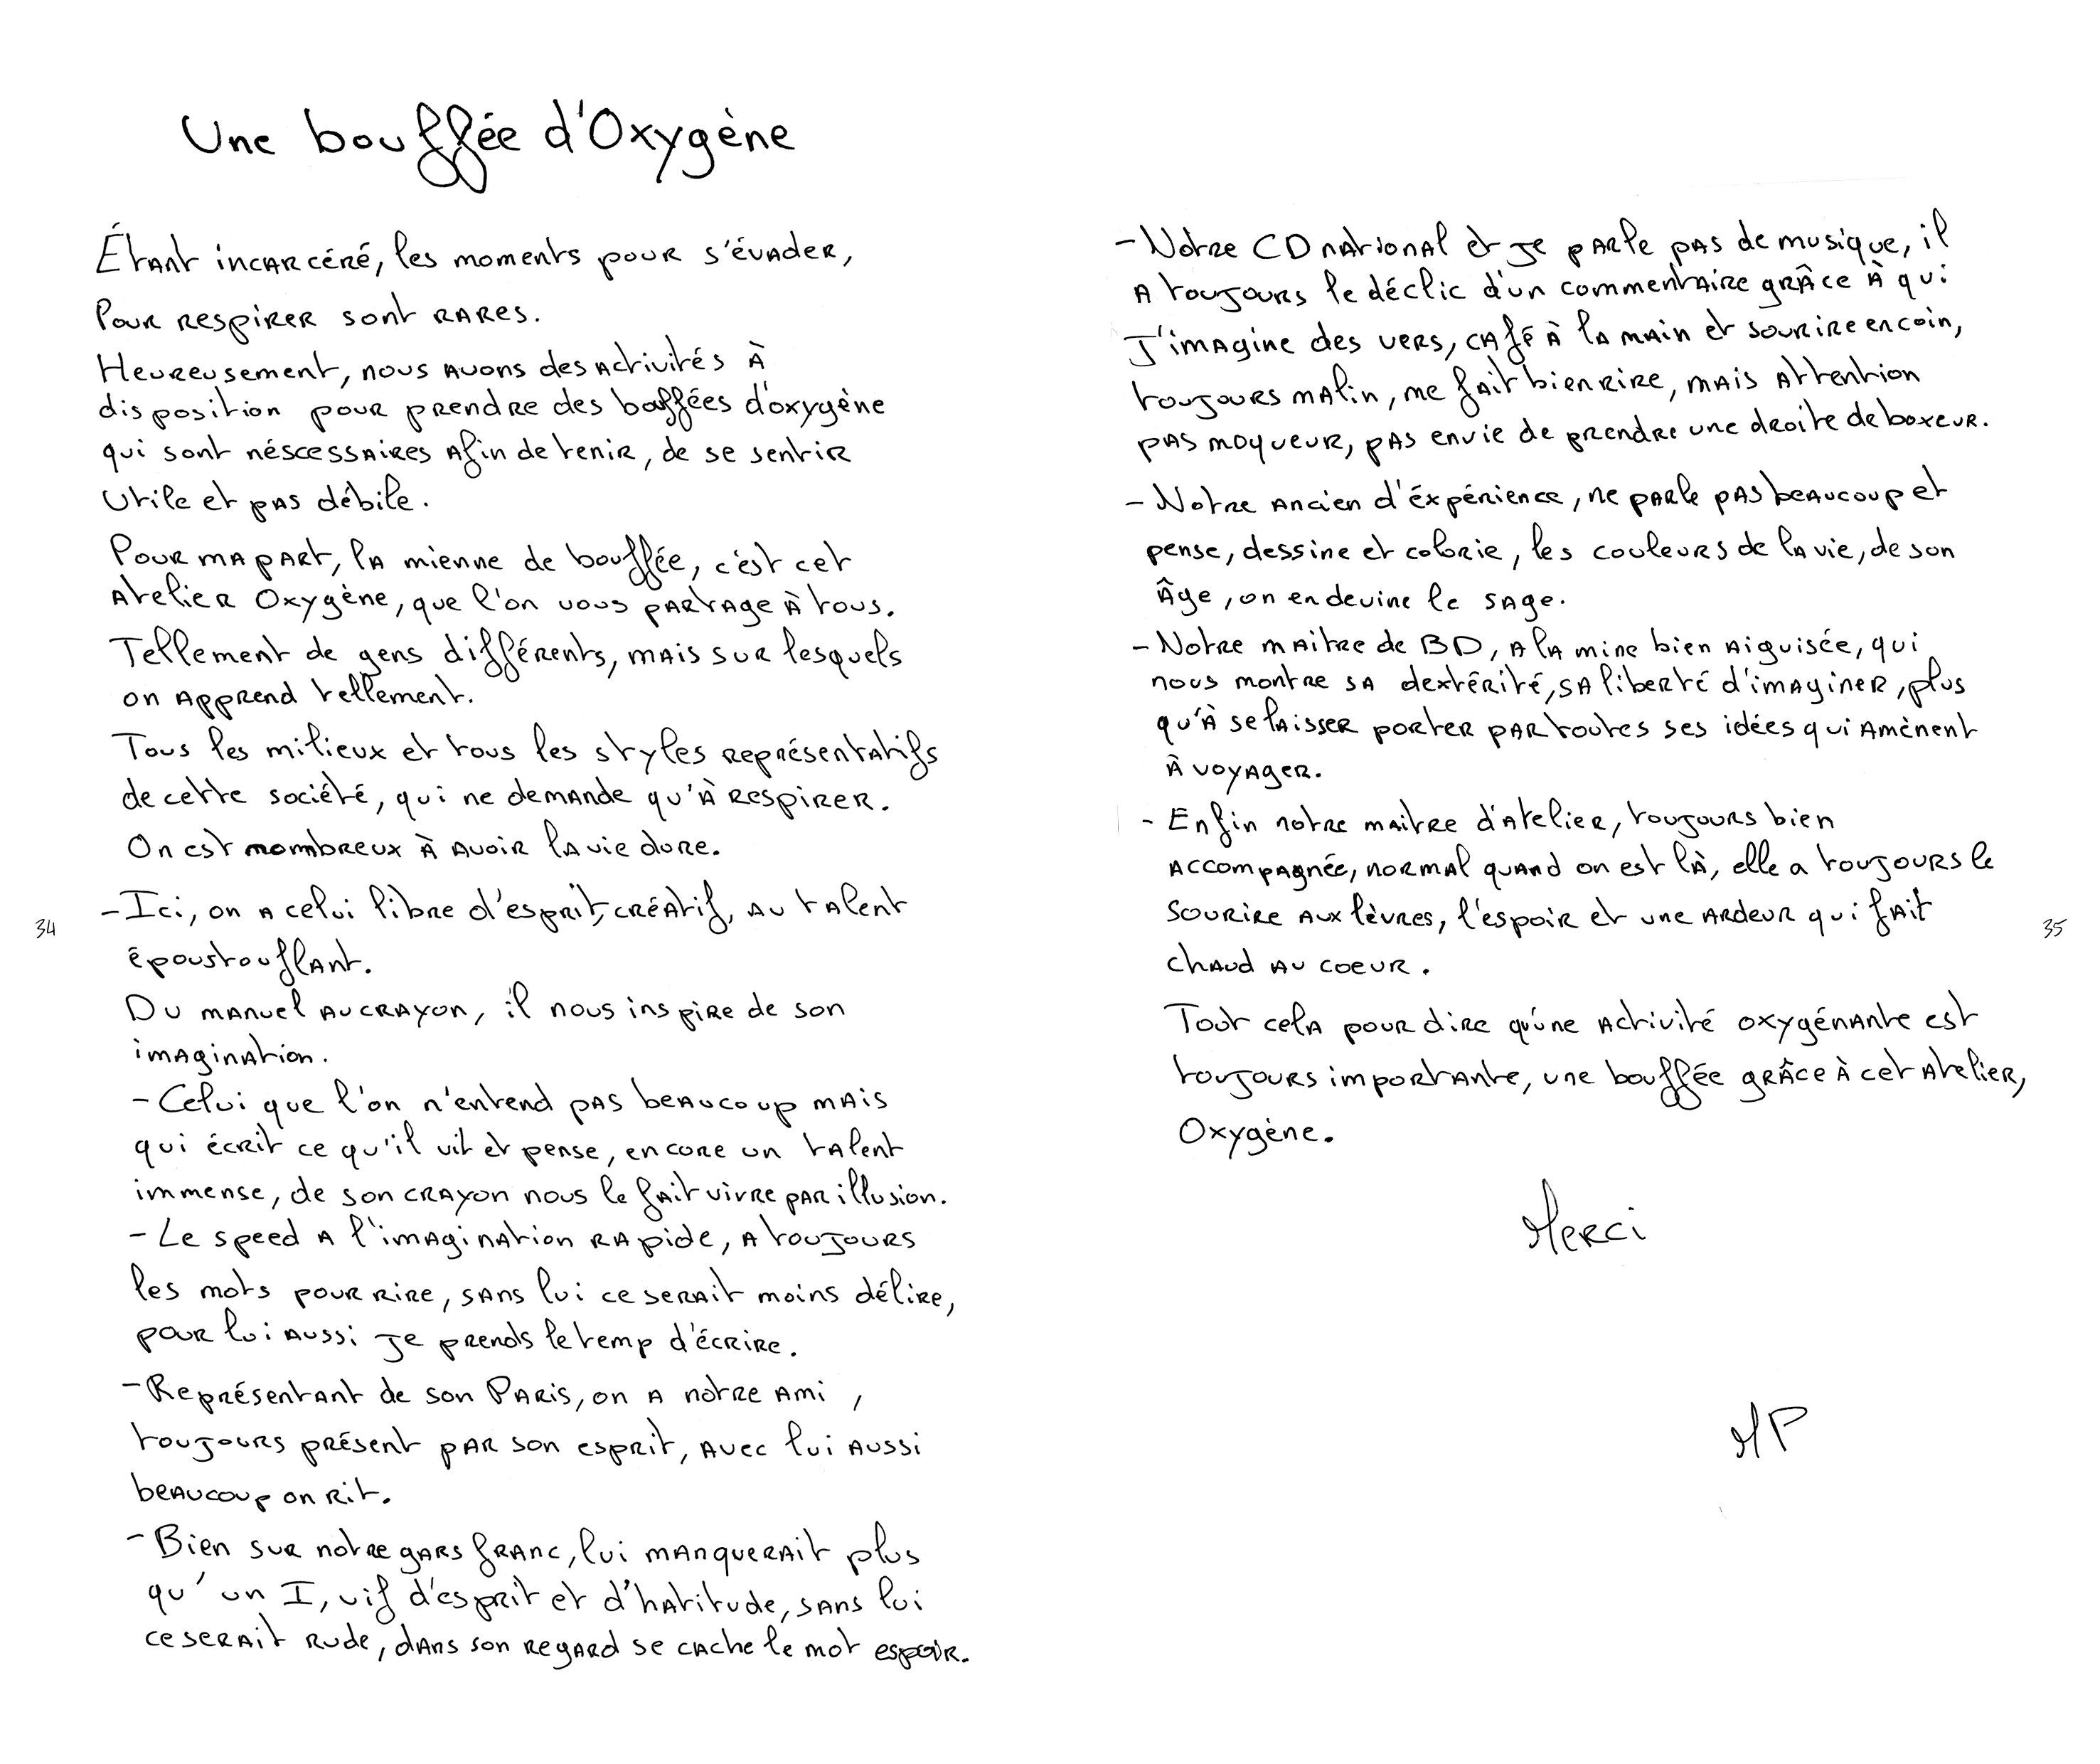 Une bouffée d'Oxygène
Étant incarcéré, les moments pour s'évader,
Pour respirer sont rares.
Heureusement, nous avons des activités à
disposition pour prendre des bouffées d'oxygène
qui sont néscessaires afin de tenir, de se sentir
Utile et pas débile.
Pour ma part, la mienne de bouffée, c'est cet
atelier Oxygène, que l'on vous partage à tous.
Tellement de gens différents, mais sur lesquels
on apprend tellement.
Tous les milieux et tous les styles représentatifs
de cette société, qui ne demande qu'à respirer.
On est nombreux à avoir la vie dure.
- Ici, on a celui libre d'esprit, créatif, au talent
époustouflant.
Du manuel au crayon, il nous inspire de son
imagination.
- Celui que l'on n'entend pas beaucoup mais
qui écrit ce qu'il vit et pense, encore un talent
immense, de son crayon nous le fait vivre par illusion.
- Le speed a l'imagination rapide, a toujours
les mots pour rire, sans lui ce serait moins délire,
pour lui aussi je prends le temp d'écrire.
- Représentant de son Paris, on a notre ami,
toujours présent par son esprit, avec lui aussi
beaucoup on rit.
- Bien sur notre gars franc, lui manquerait plus
qu'un I, vif d'esprit et d'hatitude, sans lui
ce serait rude, dans son regard se cache le mot espoir.
34
- Notre CD national et je parle pas de musique, il
a toujours le déclic d'un commentaire grâce à qui
J'imagine des vers, café à la main et sourire en coin,
toujours malin, me fait bien rire, mais attention
pas moqueur, pas envie de prendre une droite de boxeur.
- Notre ancien d'éxpérience, ne parle pas beaucoup et
pense, dessine et colorie, les couleurs de la vie, de son
âge, on en devine le sage.
- Notre maitre de BD, a la mine bien aiguisée, qui
nous montre sa dextérité, sa liberté d'imaginer, plus
qu'à se laisser porter par toutes ses idées qui amènent
à voyager.
- Enfin notre maitre d'atelier, toujours bien
accompagnée, normal quand on est là, elle a toujours le
sourire aux lèvres, l'espoir et une ardeur qui fait
chaud au coeur.
Tout cela pour dire qu'une activité oxygénante est
toujours importante, une bouffée grâce à cet atelier,
Oxygène.
Merci
MP
35